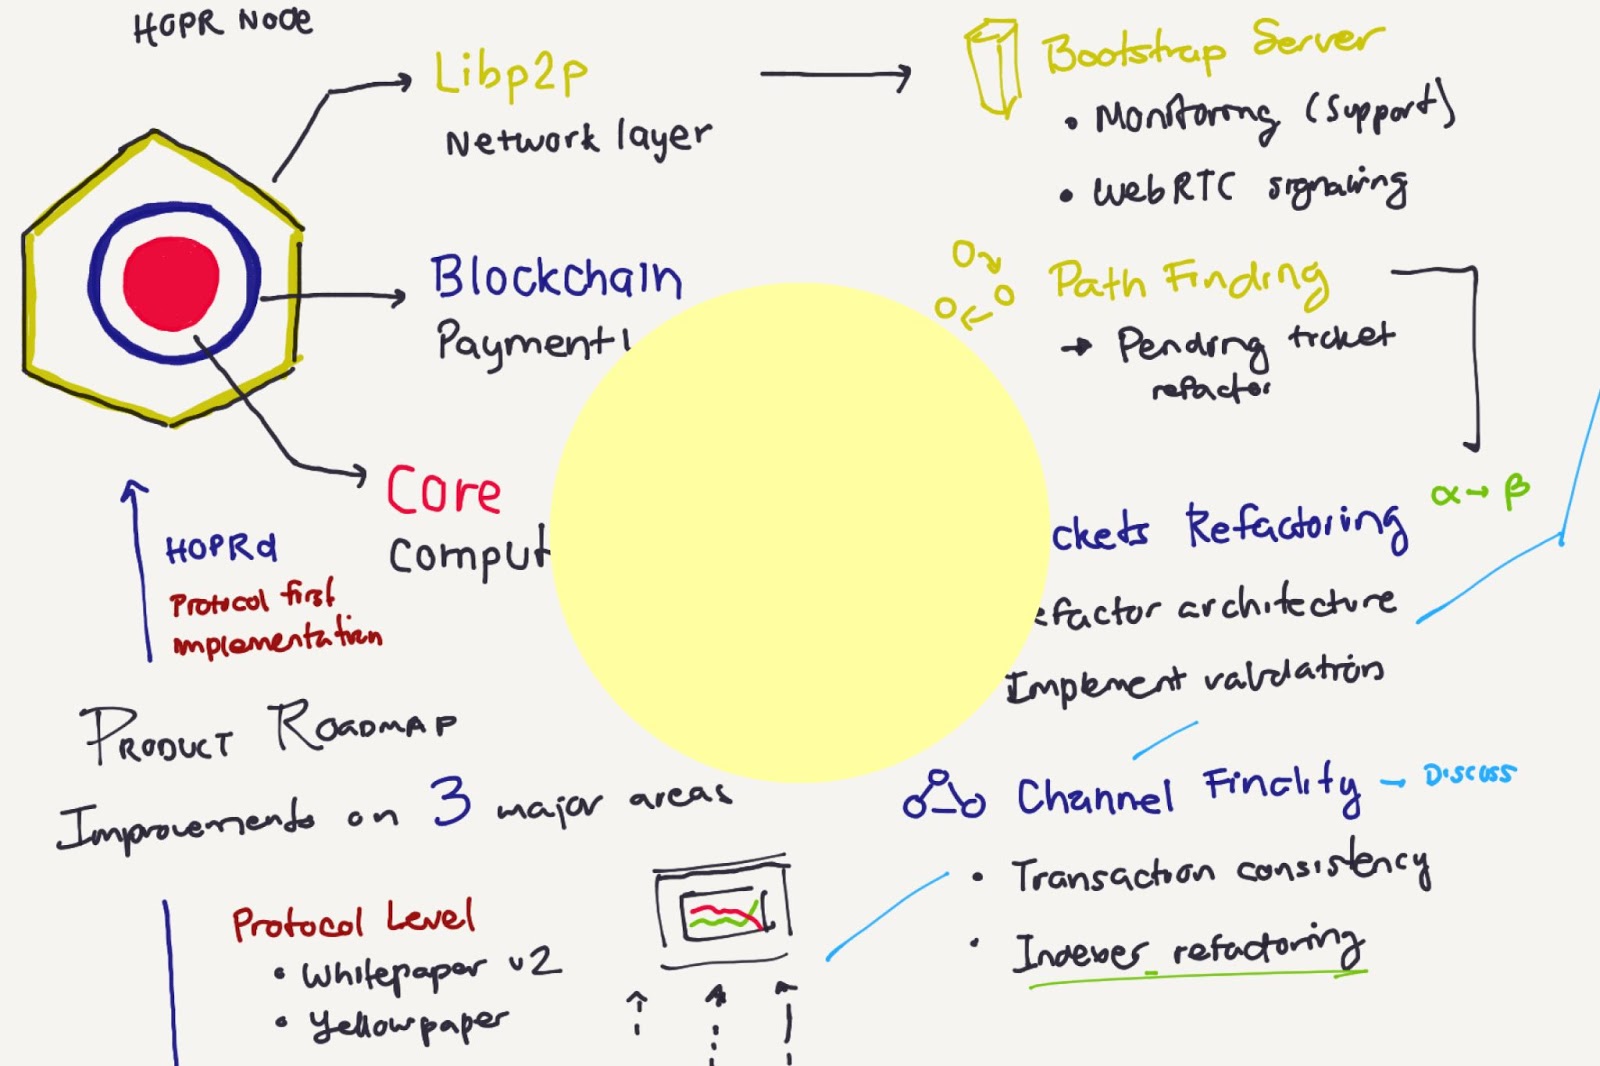 HOPR NODE
Libp2p
Network layer
Blockchain
Payment
Core
Comput
HOPRd
Protocol first
implementation
PRODUCT ROADMAP
Improvements on 3 major areas
Protocol Level
• Whitepaper v2
• Yellowpaper
Bootstrap Server
• Monitoring (Support)
• WebRTC signaling
Path Finding
→ Pending ticket
refactor
α → β
ckets Refactoring
efactor architecture
Implement validations
Channel Finality - Discuss
• Transaction consistency
• Indexer refactoring